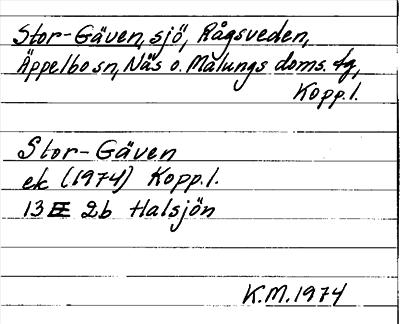 Stor-Gäven, sjö, Rågsveden,
Äppelbo sn, Nås o. Malungs doms. tg,
Kopp.l.
Stor-Gäven
ek (1974) Kopp.l.
13 E 2b Halsjön
K.M. 1974